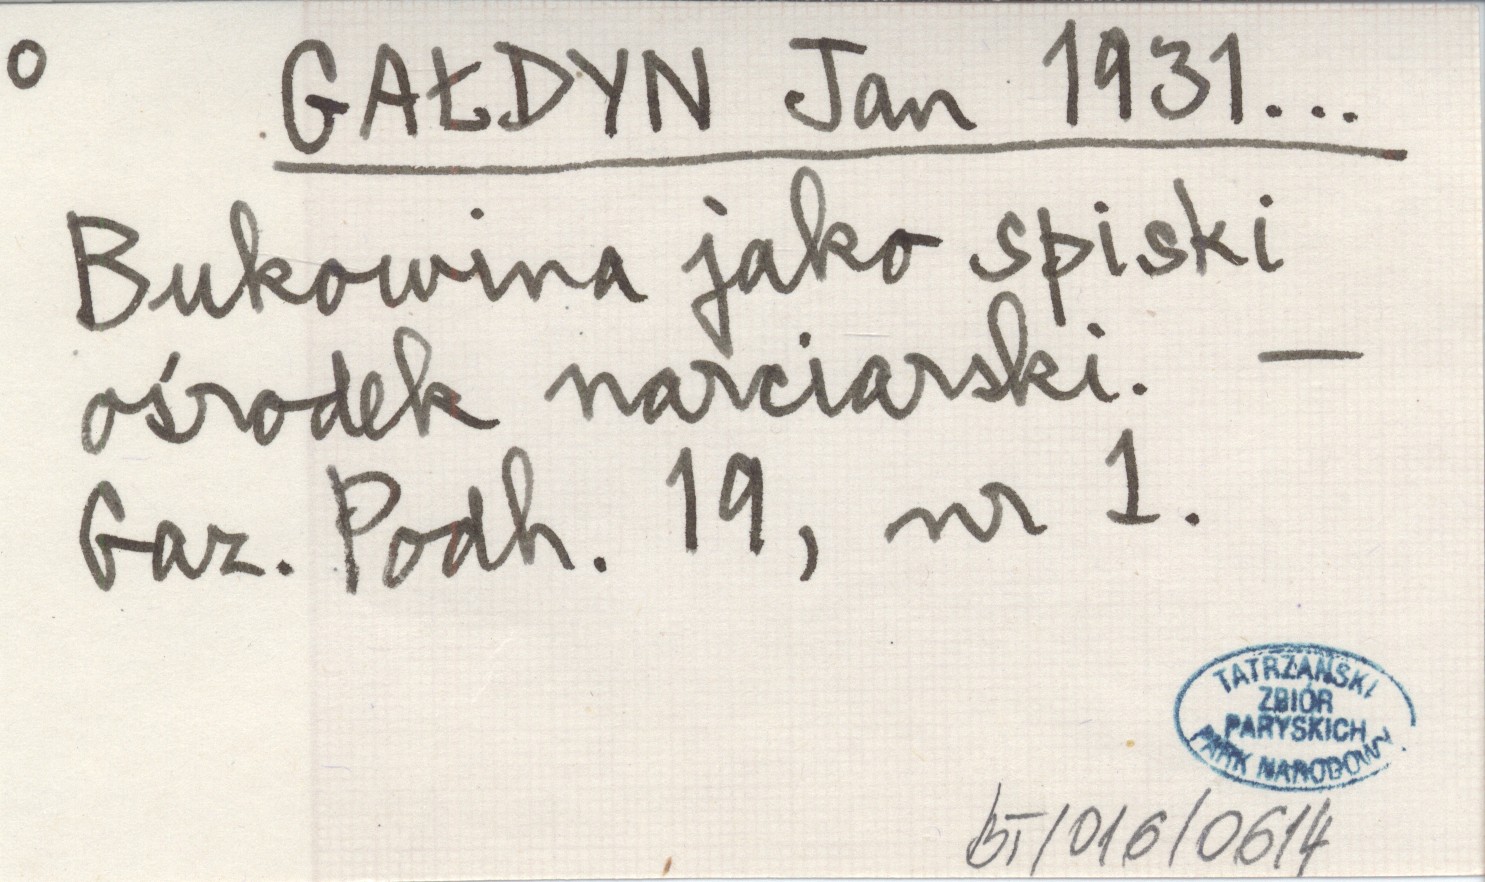 o GAŁDYN Jan 1931...
Bukowina jako spiski
ośrodek narciarski. —
Gaz. Podh. 19, nr 1.
TATRZAŃSKI
ZBIÓR
PARYSKICH
PARK NARODOWY
BT/016/0614